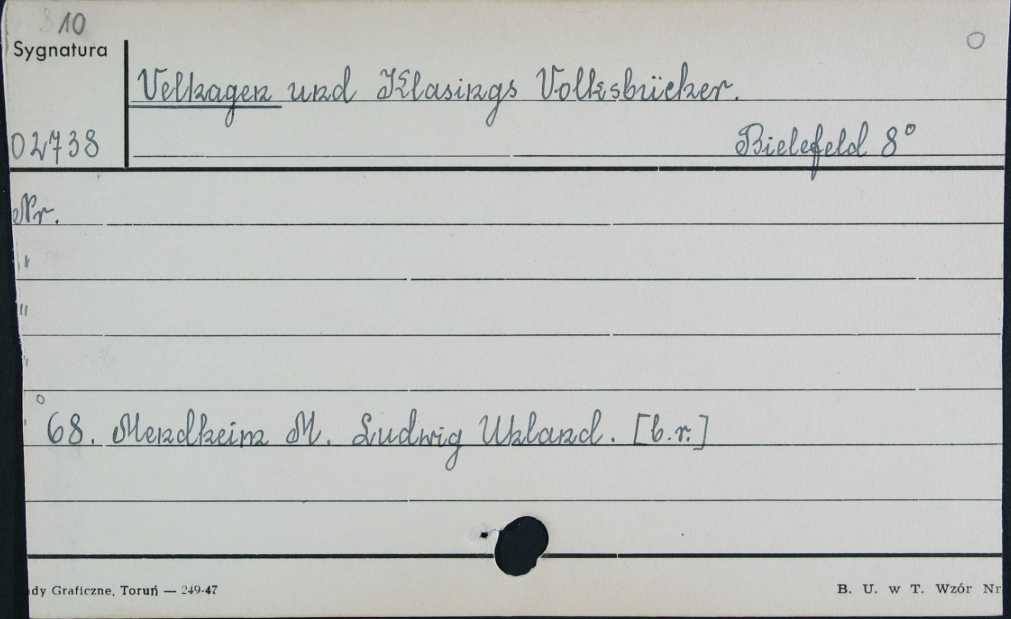 10
Sygnatura
Velhagen und Klasings Volksbücher.
02738
Bielefeld 8°
Nr.
"
"
"
" 68. Mendheim M. Ludwig Uhland. [b.r.]
dy Graficzne, Toruń — 249-47
B. U. w T. Wzór Nr